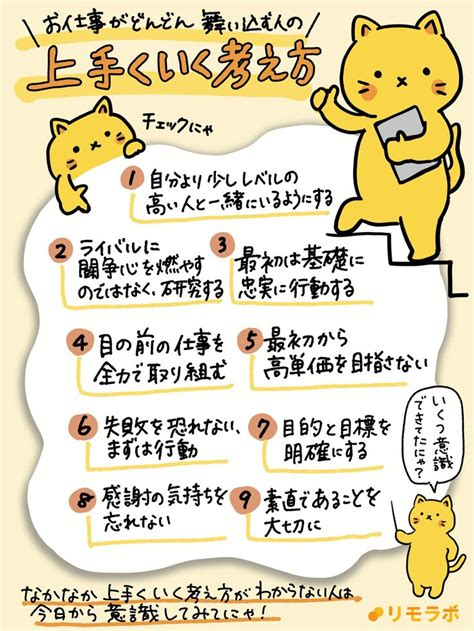 お仕事がどんどん舞い込む人の
上手くいく考え方
チェックにゃ
1 自分より少しレベルの
高い人と一緒にいるようにする
2 ライバルに
闘争心を燃やす
のではなく、研究する
3 最初は基礎に
忠実に行動する
4 目の前の仕事を
全力で取り組む
5 最初から
高単価を目指さない
6 失敗を恐れない、
まずは行動
7 目的と目標を
明確にする
8 感謝の気持ちを
忘れない
9 素直であることを
大切に
いくつ意識
できてたにゃ?
なかなか上手くいく考え方がわからない人は
今日から意識してみてにゃ!
リモラボ